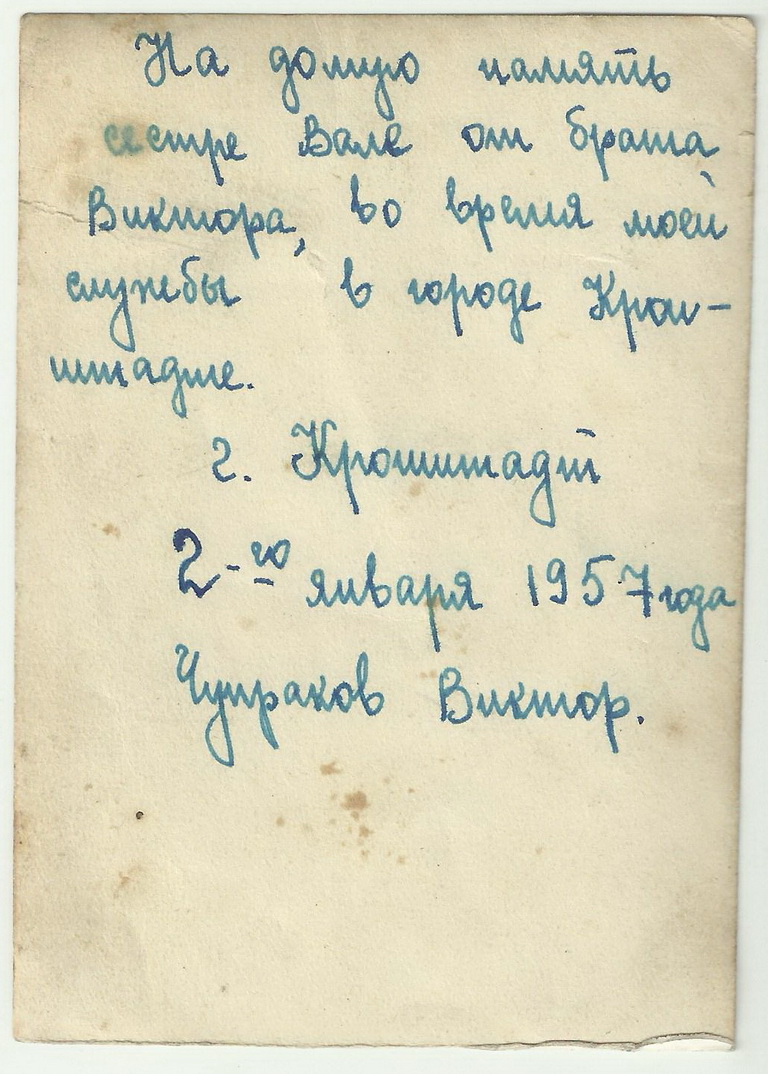 На долгую память
сестре Вале от брата
Виктора, во время моей
службы в городе Крон-
штадте.
г. Кронштадт
2-го января 1957 года
Чупраков Виктор.